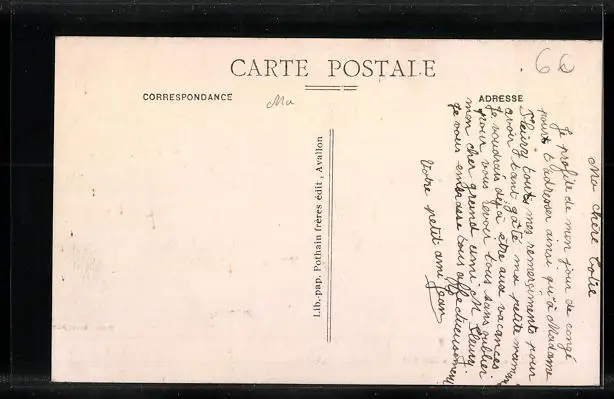 CARTE POSTALE
CORRESPONDANCE
ADRESSE
Ma
6
Lib.-pap. Pothain frères édit, Avallon
Ma chère
Je profite de mon jour de congé
pour t'adresser ainsi qu'à Madame
Fleury tous mes remerciments pour
avoir tant gâté ma petite mam
Je voudrais déjà être aux vacances
pour vous revoir tous sans oublier
mon cher grand ami M. Fleury
Je vous embrasse tous affectueusement
Votre petit ami Jean